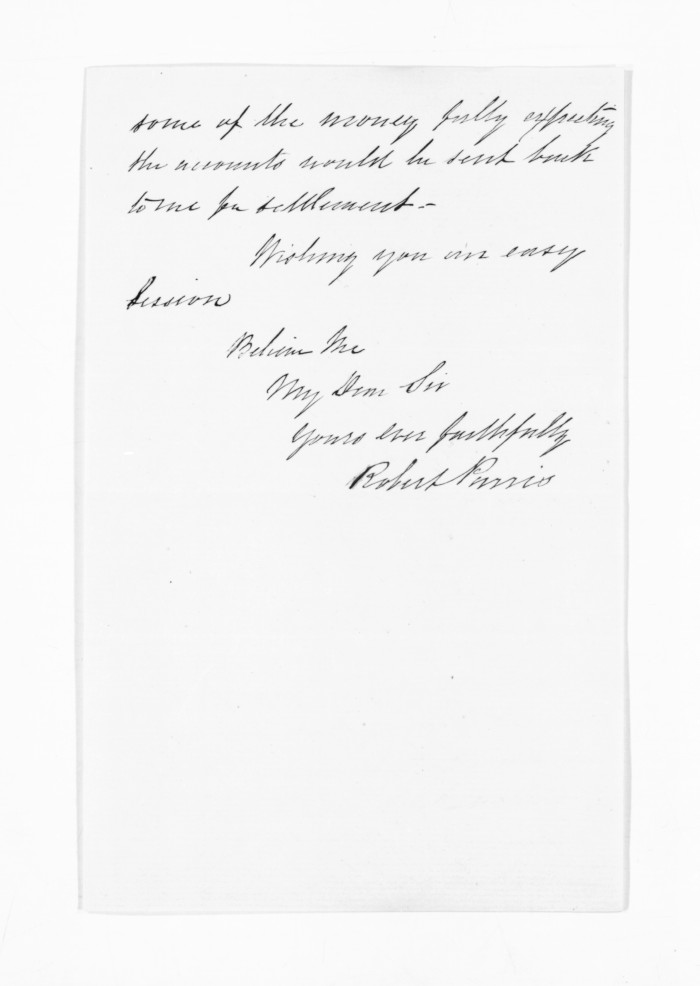 some of the money fully expecting
the accounts would be sent back
to me for settlement -
Wishing you an easy
Session
Believe Me
My Dear Sir
Yours ever faithfully
Robert Parris